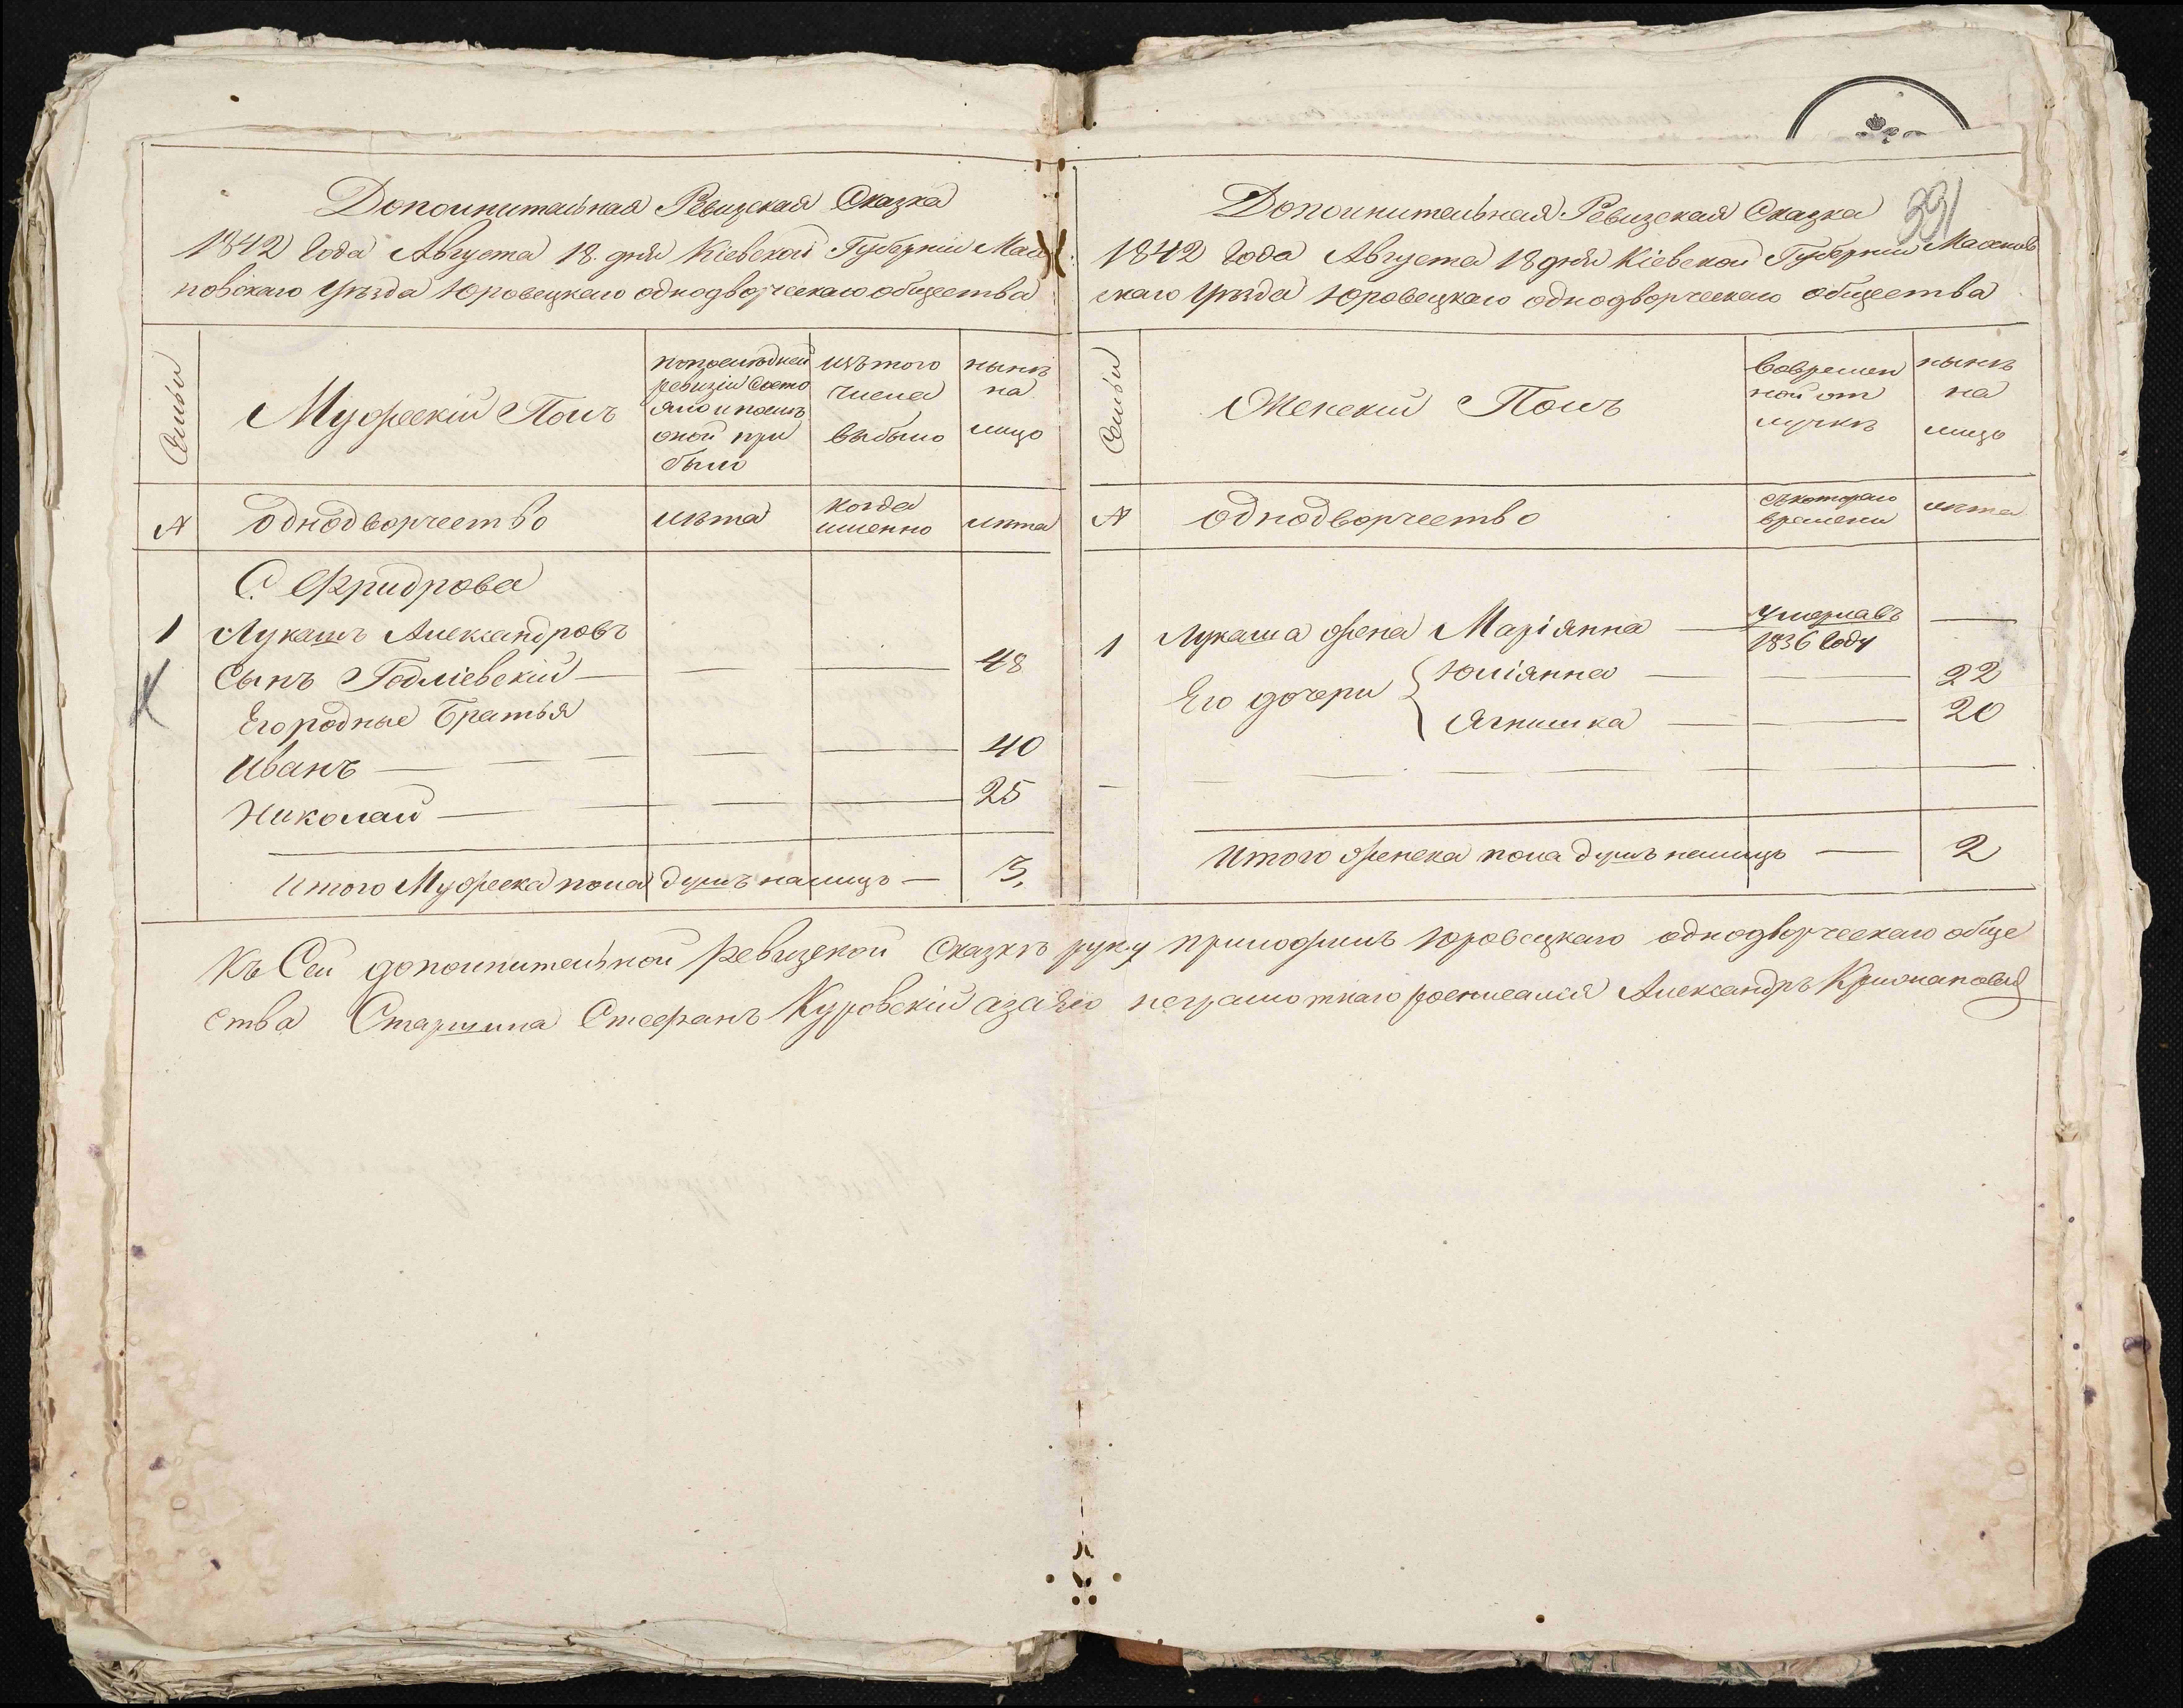 Дополнительная Ревизская Сказка
1842 Года Августа 18. дня Кіевской Губерніи Мах
новскаго Уѣзда Юровецкаго однодворческаго общества
Семьи
Мужескій Полъ
по последней
ревизіи состо
яло и послѣ
оной при
было
изъ того
числа
выбыло
нынѣ
на
лицо
№
однодворчество
лѣта
когда
именно
лѣта
С.
1 Лукашъ Александровъ
Сынъ Годліевскій — — — 48
Его родные Братья
Иванъ — — — 40
Николай — — — 25
Итого Мужеска пола душъ налицо — 3.
391
Дополнительная Ревизская Сказка
1842 Года Августа 18 дня Кіевской Губерніи Махнов
скаго Уѣзда Юровецкаго однодворческаго общества
Семьи
Женскій Полъ
Вовремен
ной от
лучкѣ
нынѣ
на
лицо
№
однодворчество
съ котораго
времени
лѣта
1 Лукаша жена Маріянна — умерла въ —
1836 Году
Его дочери { Юліянна — — 22
Ягнишка — — 20
Итого женска пола душъ налицо — 2
Къ Сей дополнительной Ревизской Сказкѣ руку приложилъ Юровецкаго однодворческаго обще
ства Старшина Стефанъ Куровскій а за его неграмотнаго росписался Александръ